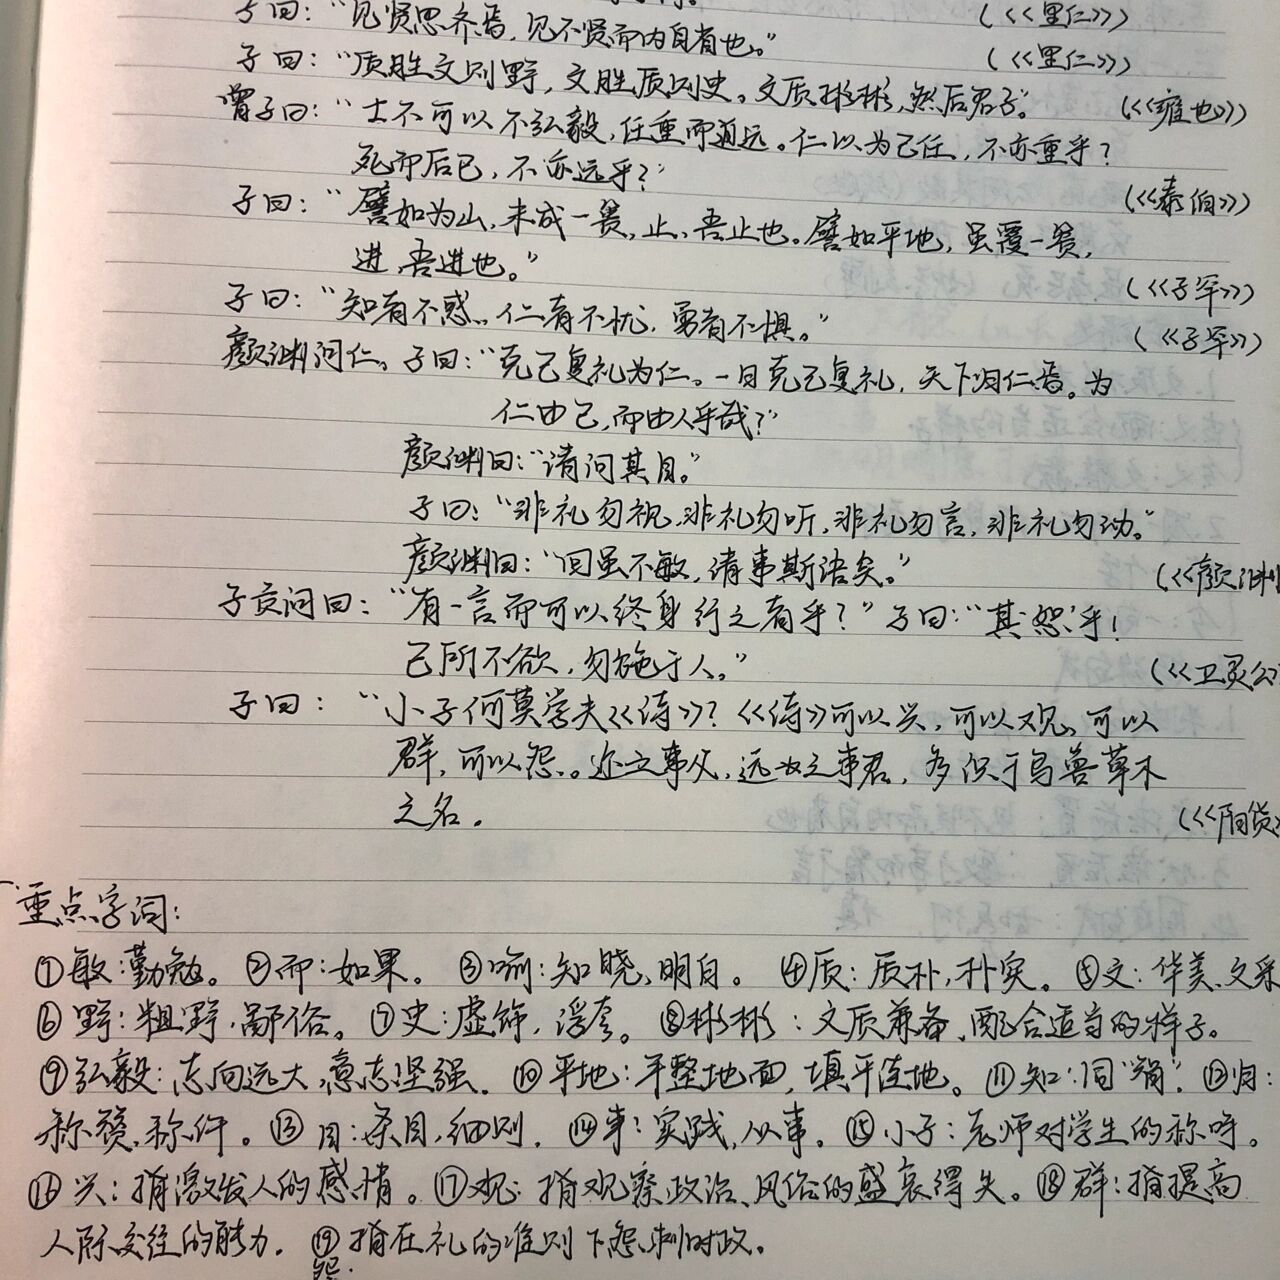 子曰："见贤思齐焉，见不贤而内自省也。" （《里仁》）
（《里仁》）
子曰："质胜文则野，文胜质则史。文质彬彬，然后君子。" （《雍也》）
曾子曰："士不可以不弘毅，任重而道远。仁以为己任，不亦重乎？
死而后已，不亦远乎？" （《泰伯》）
子曰："譬如为山，未成一篑，止，吾止也。譬如平地，虽覆一篑，
进，吾进也。" （《子罕》）
子曰："知者不惑，仁者不忧，勇者不惧。" （《子罕》）
颜渊问仁。子曰："克己复礼为仁。一日克己复礼，天下归仁焉。为
仁由己，而由人乎哉？"
颜渊曰："请问其目。"
子曰："非礼勿视，非礼勿听，非礼勿言，非礼勿动。"
颜渊曰："回虽不敏，请事斯语矣。" （《颜渊
子贡问曰："有一言而可以终身行之者乎？"子曰："其'恕'乎！
己所不欲，勿施于人。" （《卫灵公
子曰："小子何莫学夫《诗》？《诗》可以兴，可以观，可以
群，可以怨。迩之事父，远之事君，多识于鸟兽草木
之名。 （《阳货
重点字词：
①敏：勤勉。②而：如果。③喻：知晓，明白。④质：质朴，朴实。⑤文：华美、文采
⑥野：粗野，鄙俗。⑦史：虚饰，浮夸。⑧彬彬：文质兼备、配合适当的样子。
⑨弘毅：志向远大，意志坚强。⑩平地：平整地面，填平洼地。⑪知：同"智"。⑫归：
称赞，称许。⑬目：条目，细则。⑭事：实践，从事。⑮小子：老师对学生的称呼。
⑯兴：指激发人的感情。⑰观：指观察政治、风俗的盛衰得失。⑱群：指提高
人际交往的能力。⑲怨：指在礼的准则下怨刺时政。